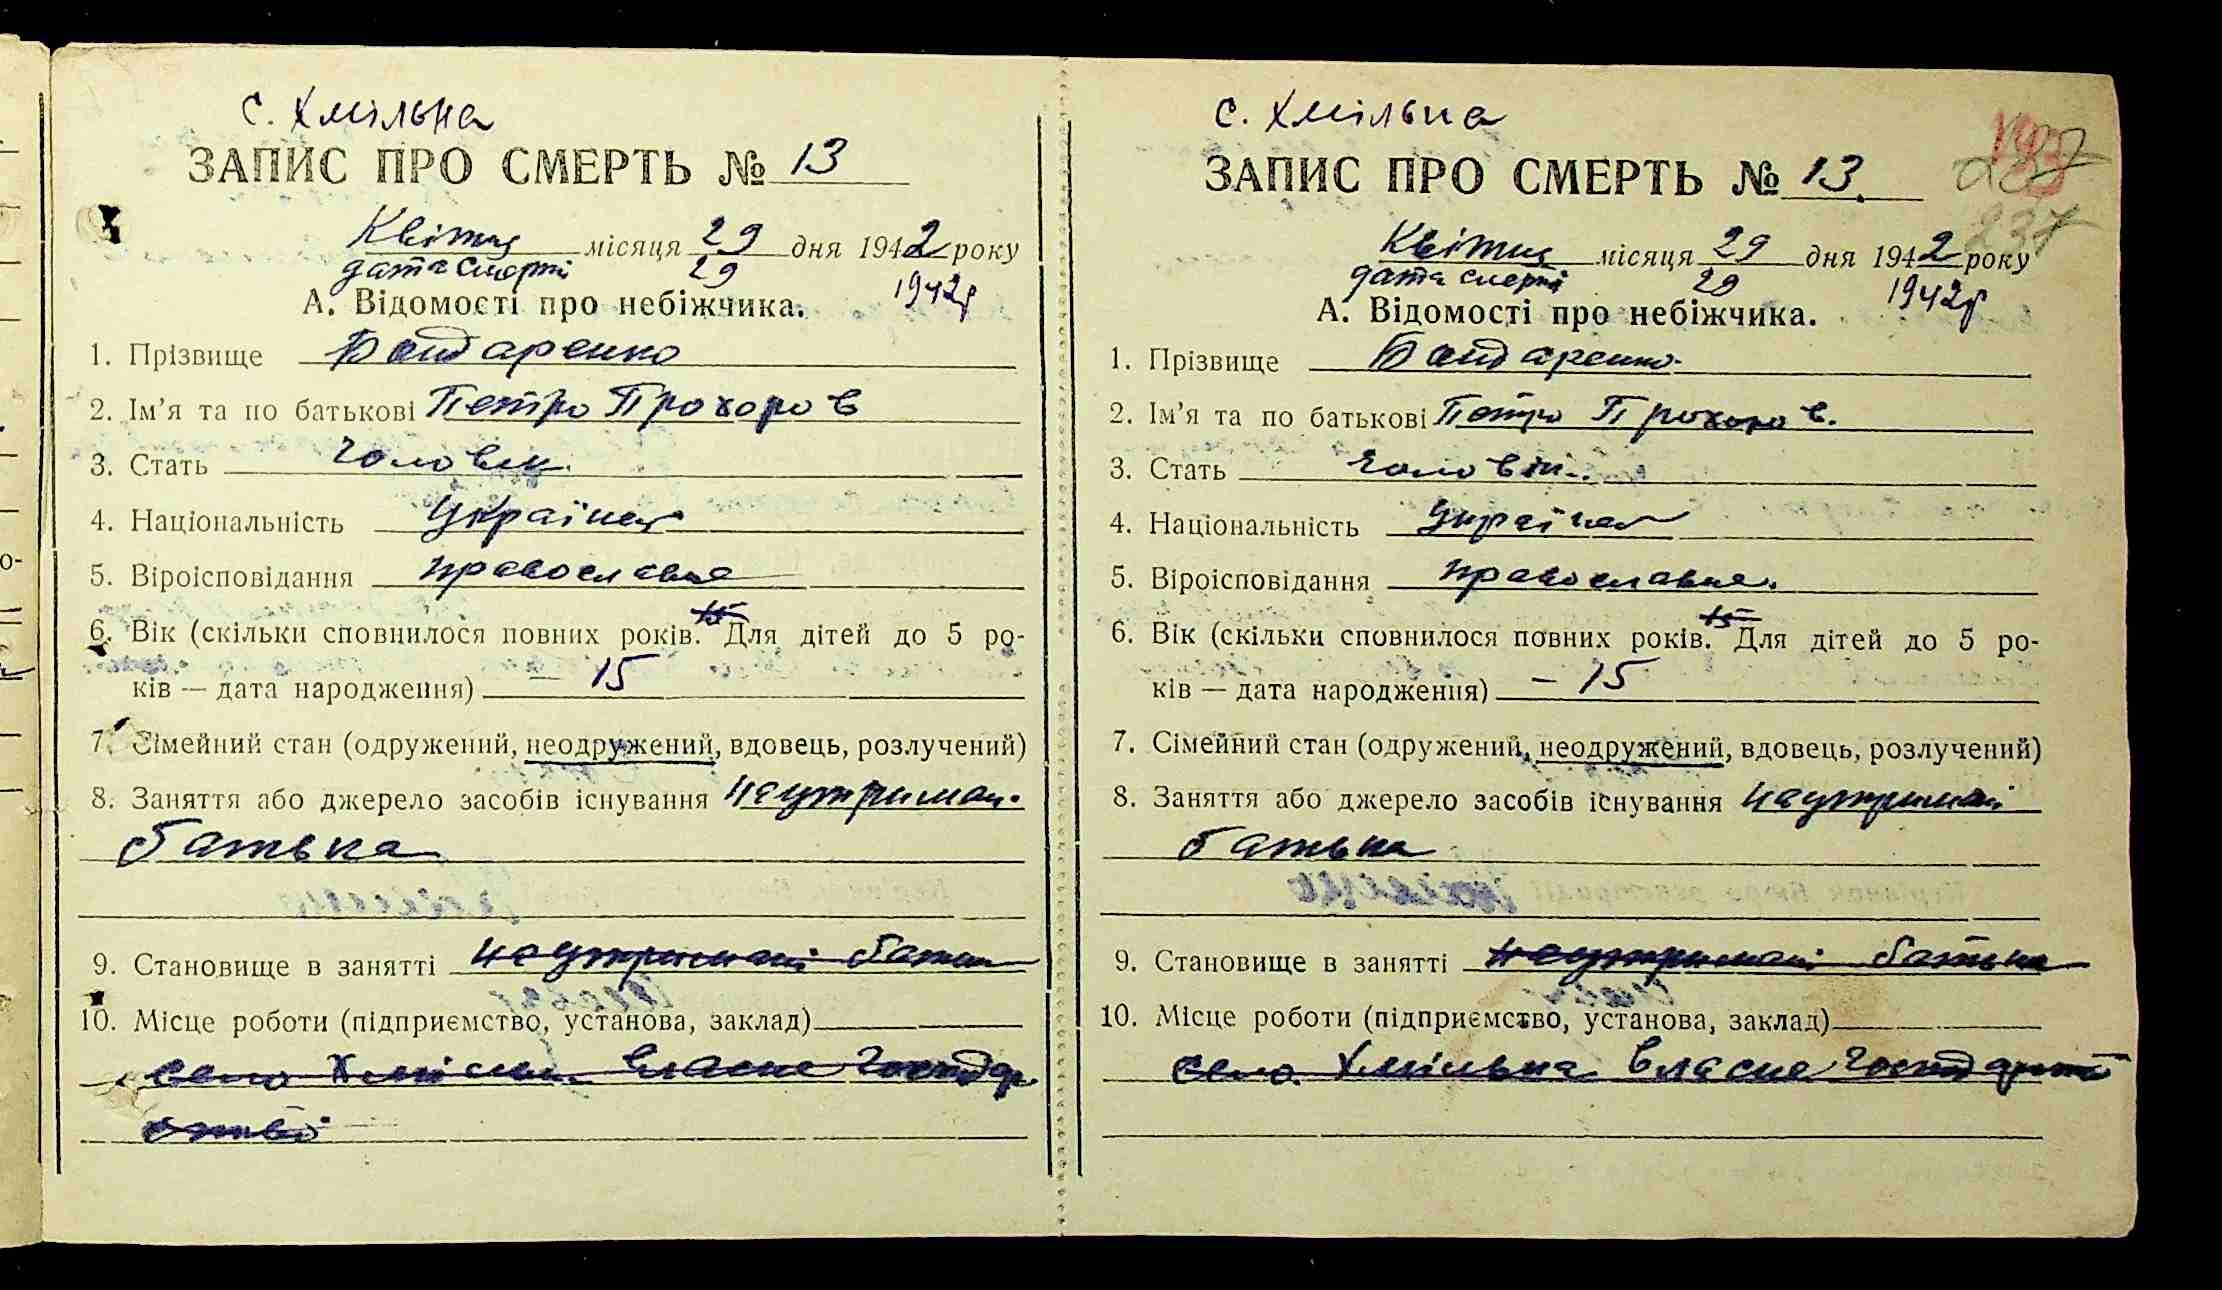 с. Хмільна
ЗАПИС ПРО СМЕРТЬ № 13
Квітня місяця 29 дня 1942 року
дата смерті 29 1942р
А. Відомості про небіжчика.
1. Прізвище Бондаренко
2. Ім’я та по батькові Петро Прохоров
3. Стать Чоловік.
4. Національність Українец
5. Віроісповідання православне
6. Вік (скільки сповнилося повних років. 15 Для дітей до 5 ро-
ків — дата народження) — 15
7. Сімейний стан (одружений, неодружений, вдовець, розлучений)
8. Заняття або джерело засобів існування на утриман.
батька
9. Становище в занятті на утримані батька
10. Місце роботи (підприємство, установа, заклад)
село Хмільна власне господар
стві
с. Хмільна
ЗАПИС ПРО СМЕРТЬ № 13.
Квітня місяця 29 дня 1942 року
дата смерті 29 1942р
А. Відомості про небіжчика.
1. Прізвище Бондаренко
2. Ім’я та по батькові Петро Прохоров.
3. Стать чоловік.
4. Національність Українец
5. Віроісповідання православне.
6. Вік (скільки сповнилося повних років. 15 Для дітей до 5 ро-
ків — дата народження) — 15
7. Сімейний стан (одружений, неодружений, вдовець, розлучений)
8. Заняття або джерело засобів існування на утримані
батька
9. Становище в занятті на утримані батька
10. Місце роботи (підприємство, установа, заклад)
село Хмільна власне господарстві
237